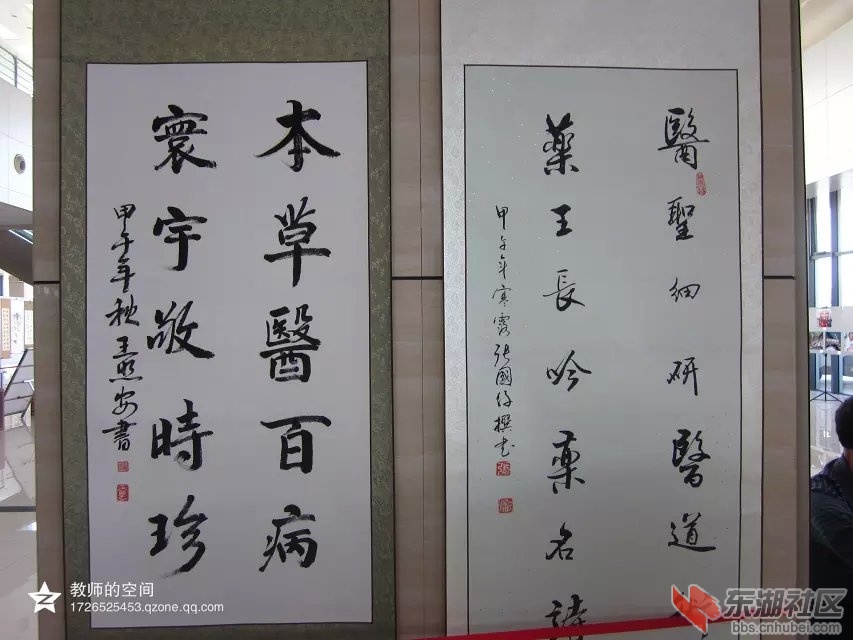 本草醫百病
寰宇敬時珍
甲午年秋王安書
醫聖細研醫道
藥王長吟藥名詩
甲午年寒露張國撰书
教师的空间
1726525453.qzone.qq.com
东湖社区
bbs.cnhubei.com